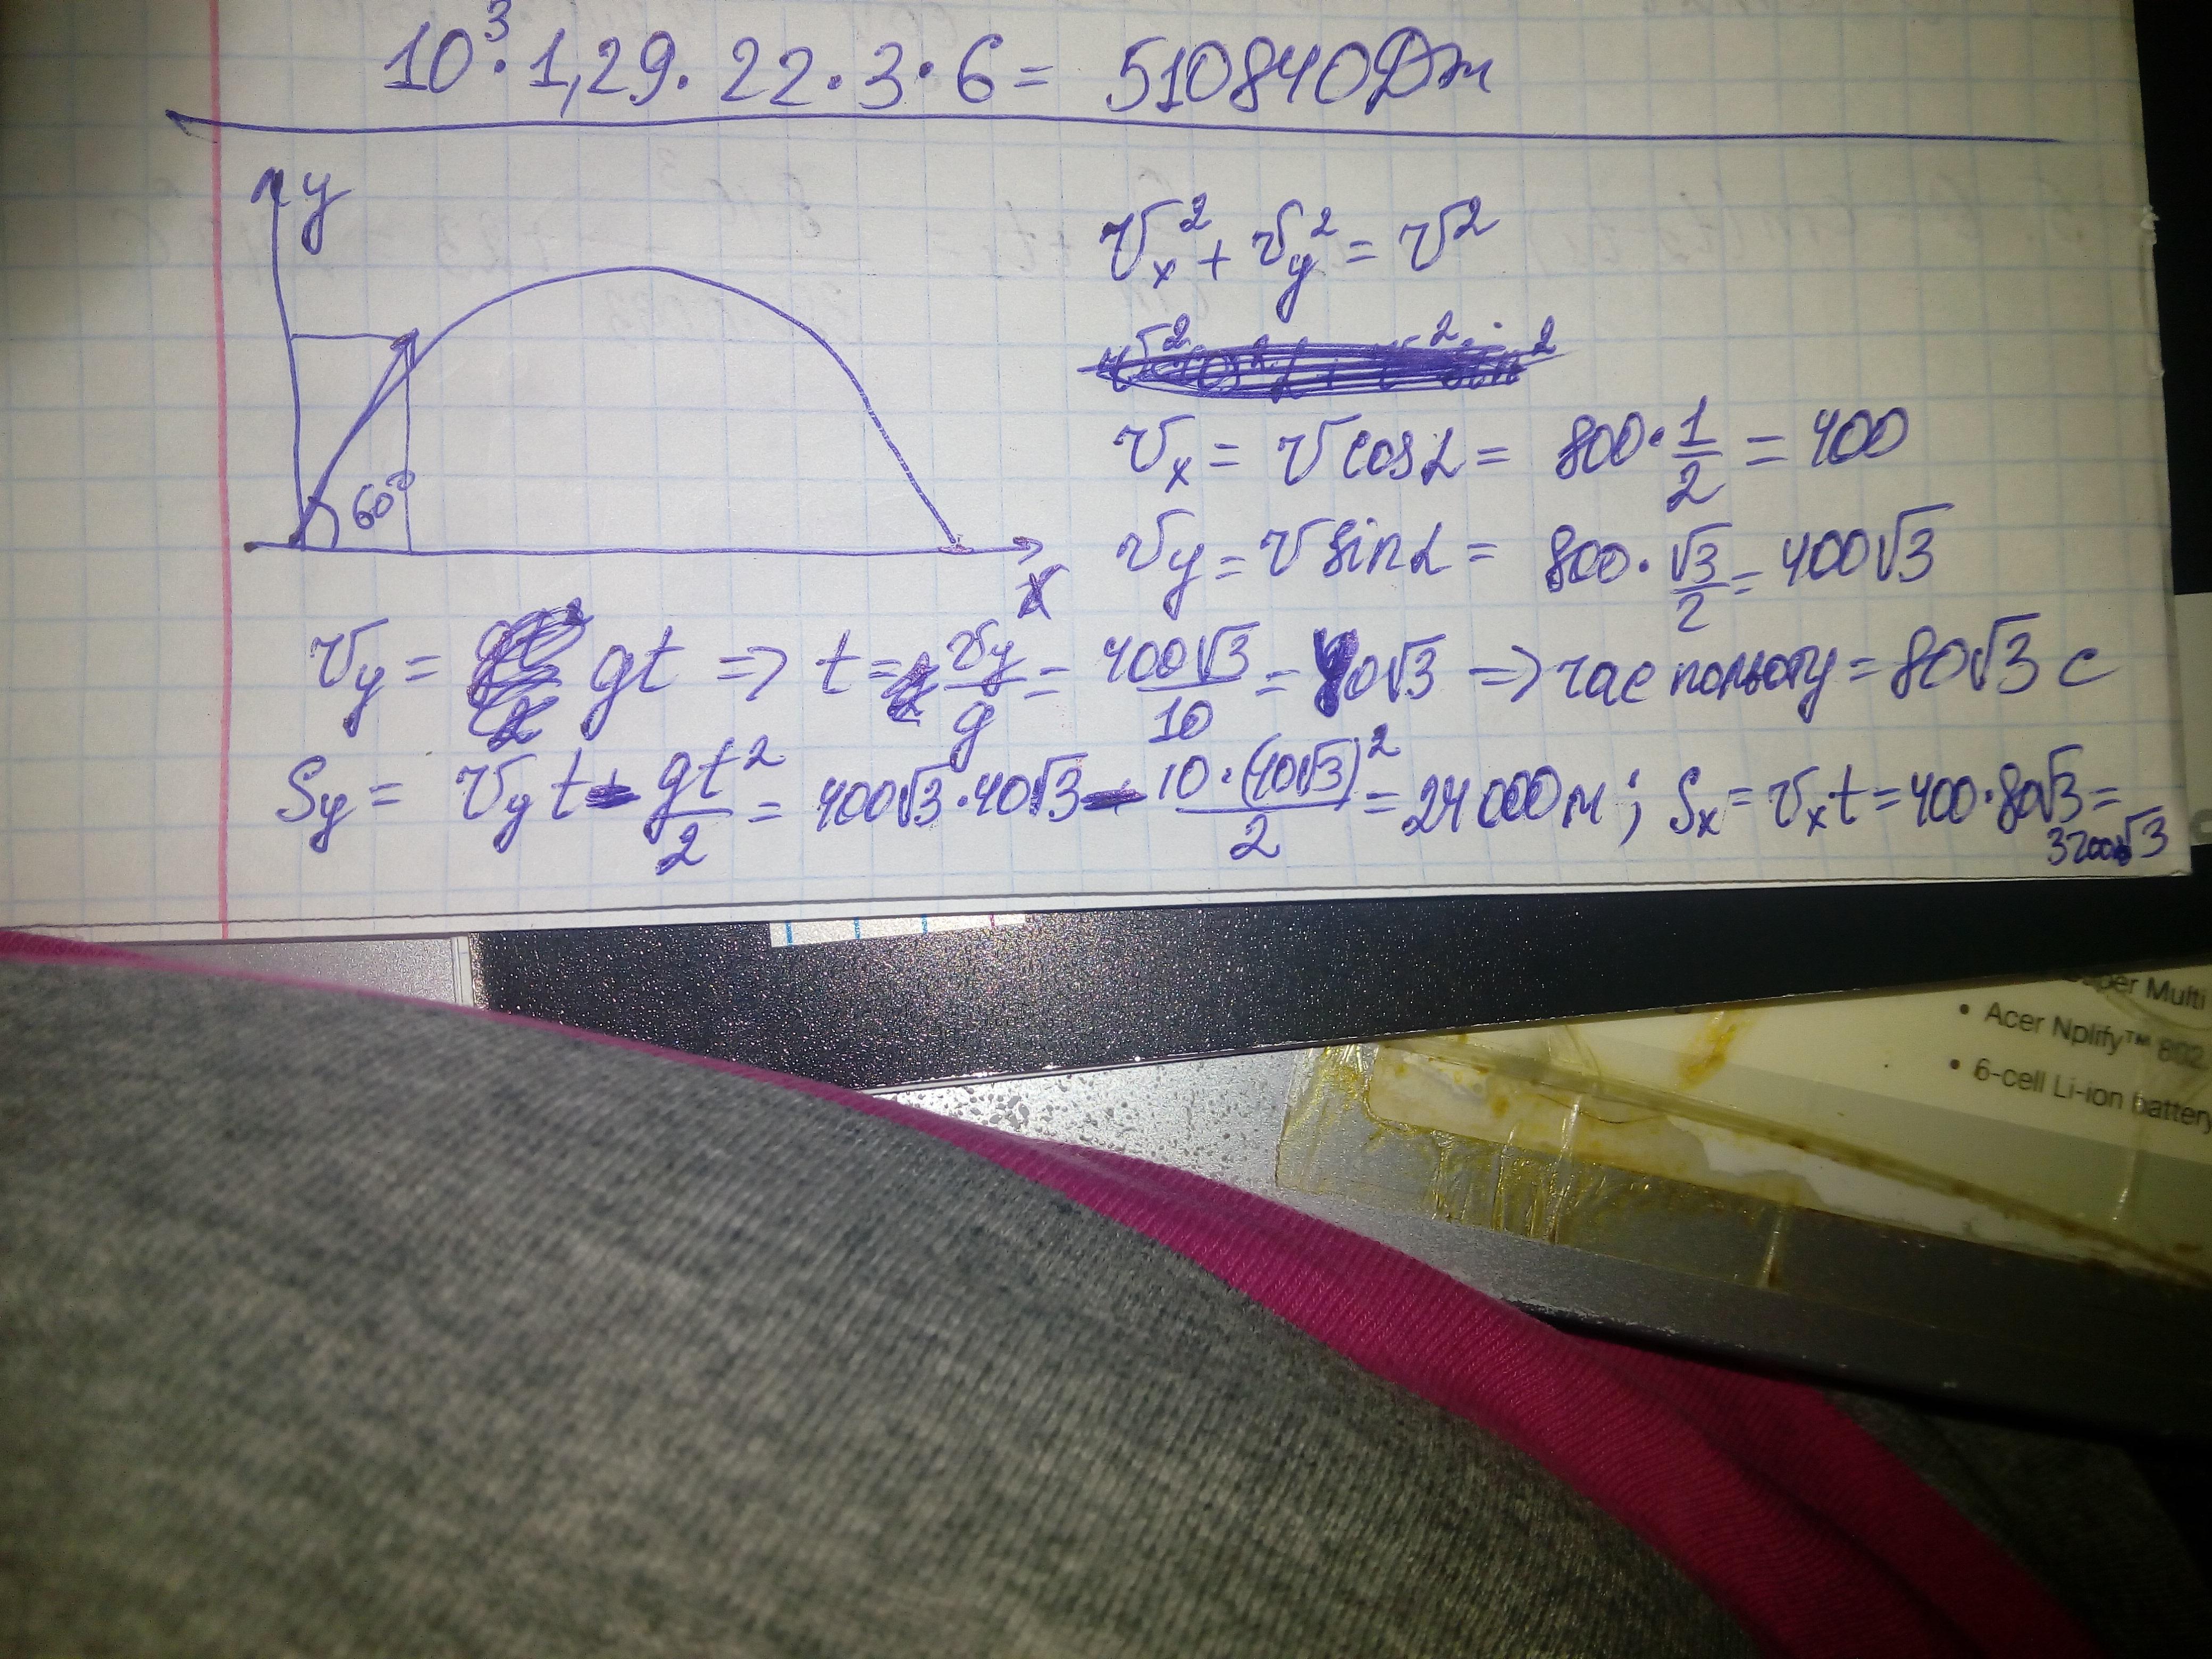 10³·1,29·22·3·6 = 510840Дж
y
60°
x
vₓ² + v_y² = v²
vₓ = v cos α = 800·1/2 = 400
v_y = v sin α = 800·√3/2 = 400√3
v_y = gt => t = v_y/g = 400√3/10 = 40√3 => час польоту = 80√3 с
S_y = v_y t - gt²/2 = 400√3·40√3 - 10·(40√3)²/2 = 24000м; Sₓ = vₓt = 400·80√3 =
32000√3
Super Multi
• Acer Nplify™ 802
• 6-cell Li-ion battery